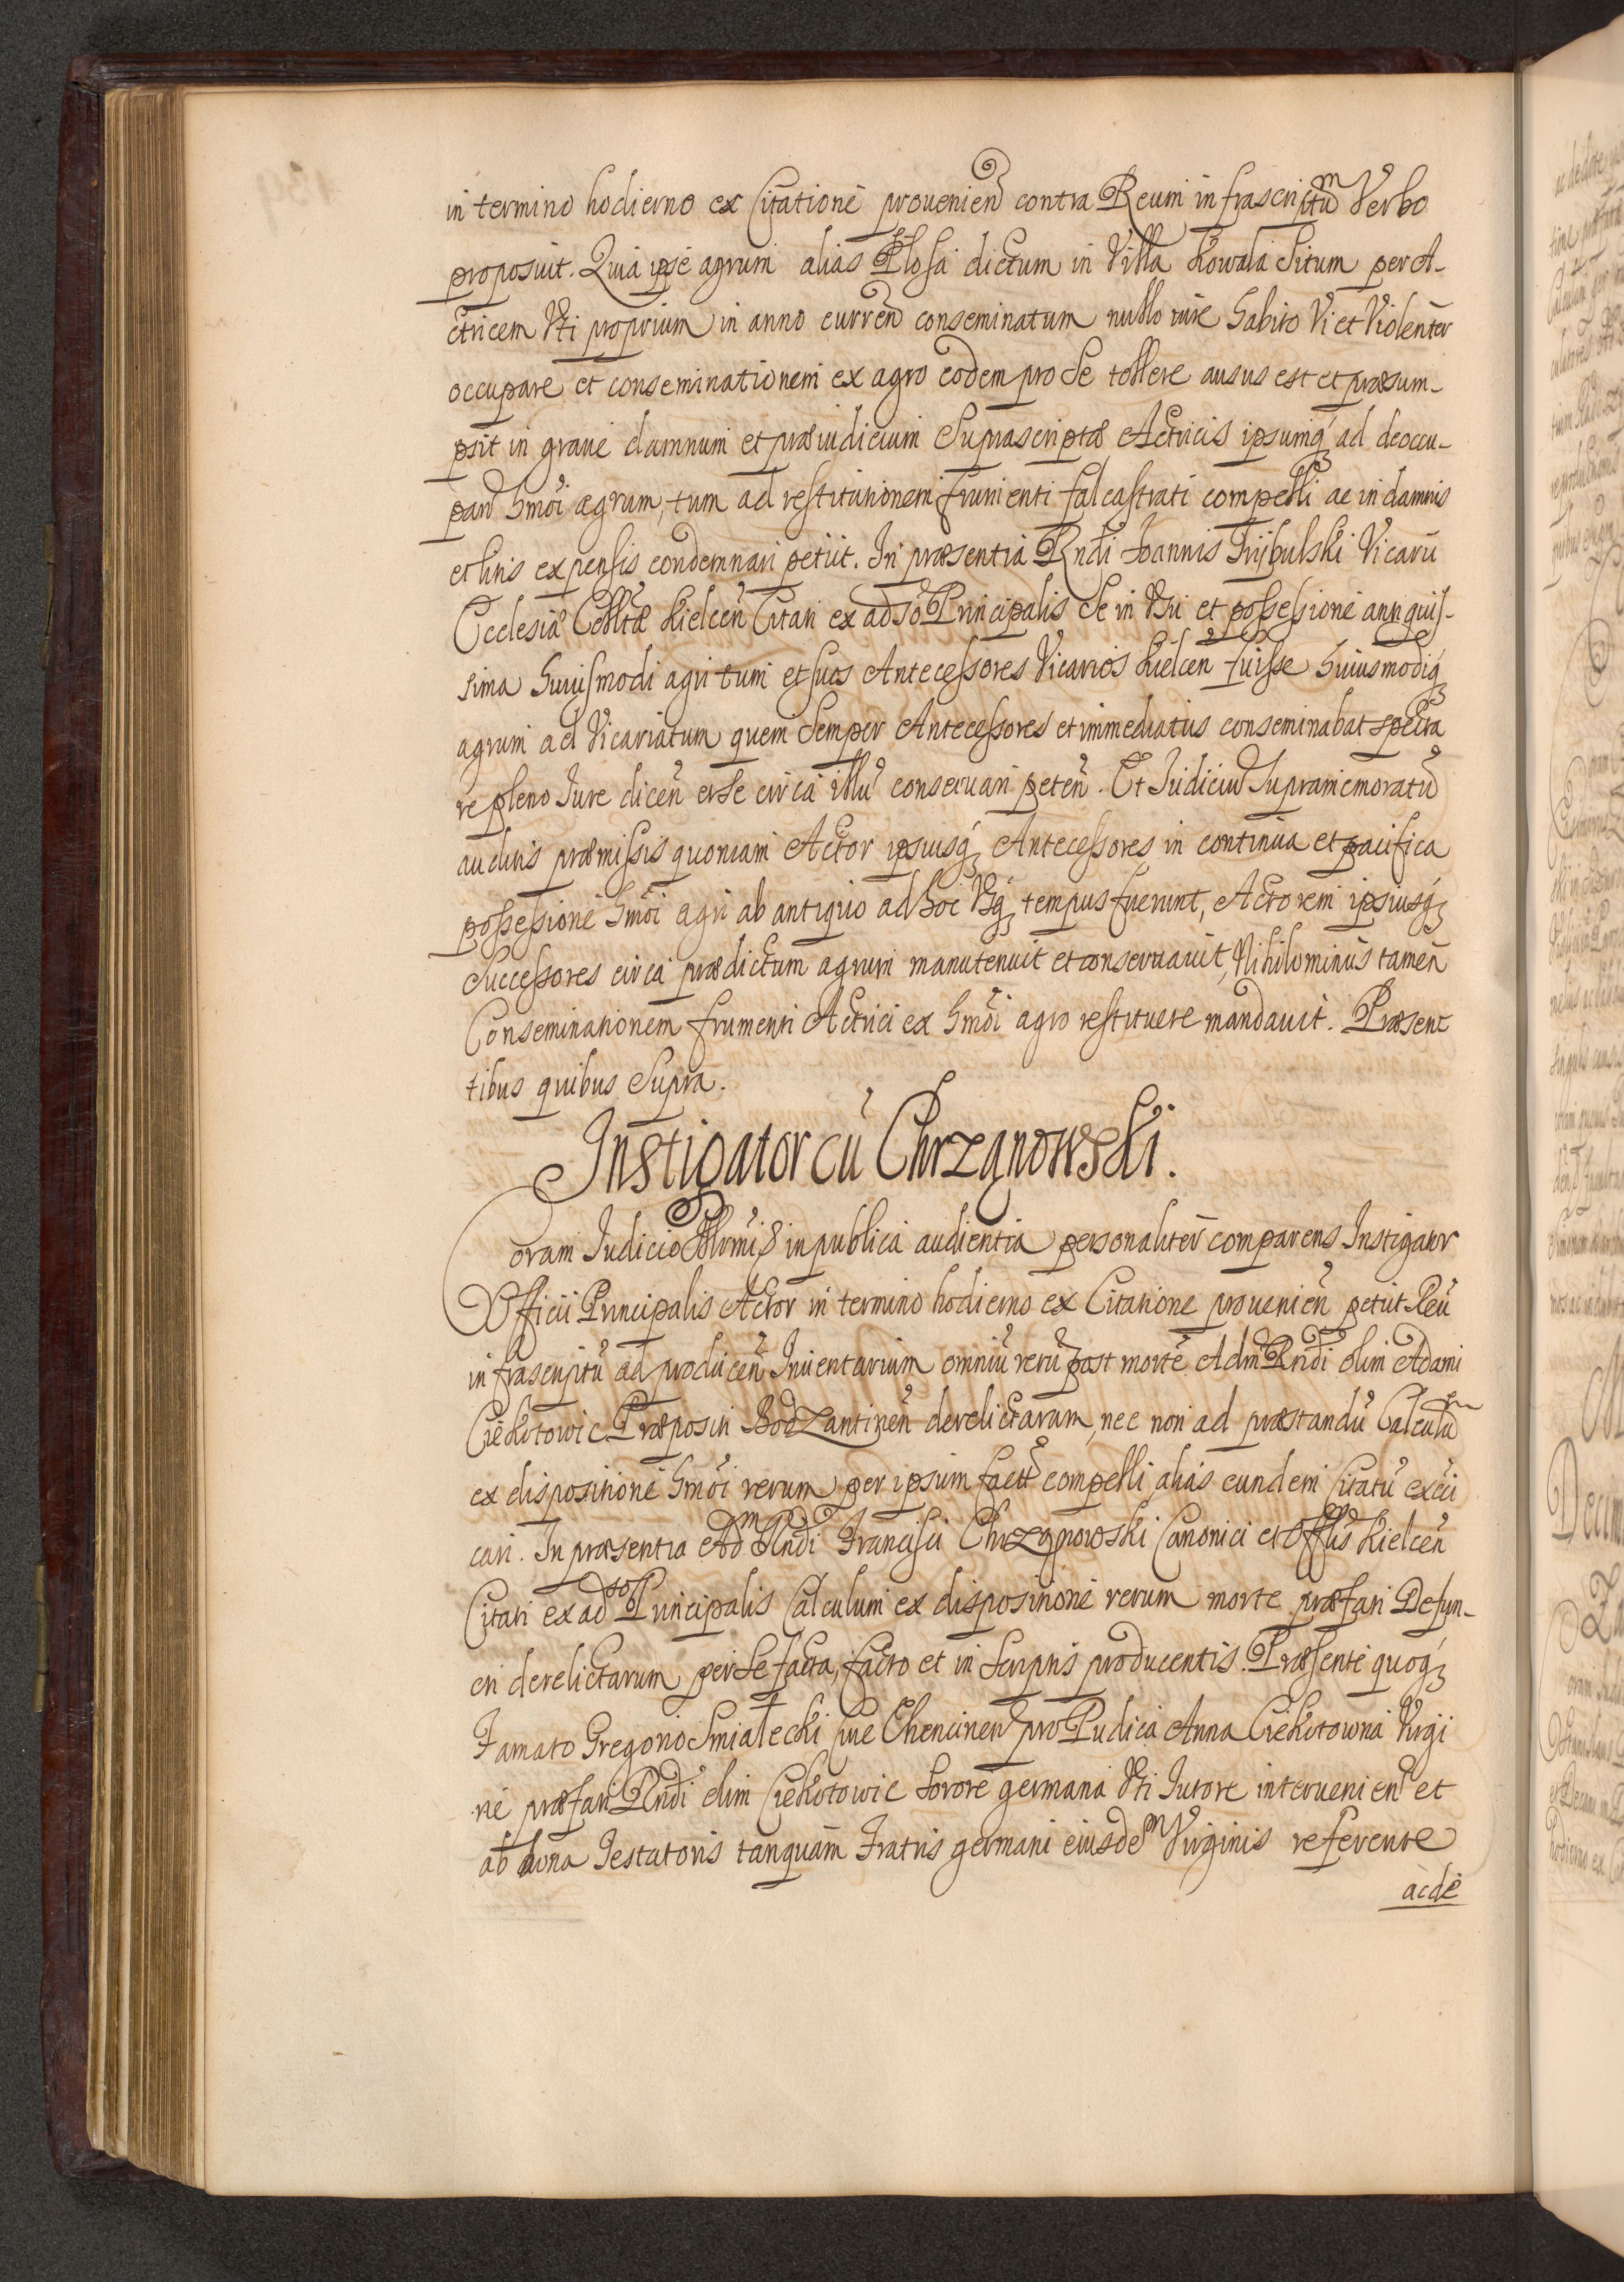 in termino hodierno ex Citatione prouenien contra Reum infrascriptum Verbo
proposuit. Quia ipse agrum alias Plosa dictum in Villa Kowala Situm per A-
ctricem Vti proprium in anno curren conseminatum nullo iure habito Vi et Violenter
occupare et conseminationem ex agro eodem pro Se tollere ausus est et præsum-
psit in graue damnum et præiudicium Suprascriptæ Actricis ipsumq ad deoccu-
pand hmoi agrum, tum ad restitutionem frumenti falcastrati compelli ac in damnis
et litis expensis condemnari petiit. In præsentia Rndi Joannis Trybulski Vicarii
Ecclesiæ Colltæ Kielcen Citati ex adso Principalis Se in Vsu et possessione antiquis-
sima huiusmodi agri tum et suos Antecessores Vicarios Kielcen fuisse huiusmodiq
agrum ad Vicariatum quem Semper Antecessores et immediatus conseminabat specta
re pleno Jure dicen et se circa illu conseruari peten. Et Judiciu Supramemoratu
auditis præmissis quoniam Actor ipsiusq Antecessores in continua et pacifica
possessione hmoi agri ab antiquo ad hoc Vsq tempus fuerunt, Actorem ipsiusq
Successores circa prædictum agrum manutenuit et conseruauit, Nihilominus tamen
Conseminationem frumenti Actrici ex hmoi agro restituere mandauit. Præsen
tibus quibus Supra.
Instigator cu Chrzanowski.
Coram Judicio Illrmi in publica audientia personaliter comparens Instigator
Officii Principalis Actor in termino hodierno ex Citatione prouenien petiit Reu
infrascriptu ad producen Inuentarium omniu reru post morte Adm Rndi olim Adami
Ciekotowic Præpositi Bodzantinen derelictarum, nec non ad præstandu Calculum
ex dispositione hmoi rerum per ipsum fact compelli alias eundem Citatu excōi
cari. In præsentia Adm Rndi Francisci Chrzanowski Canonici et Offlis Kielcen
Citati ex adso Principalis Calculum ex dispositione rerum morte præfati Defun-
cti derelictarum per Se facta, facto et in Scriptis producentis. Præsente quoq
Famato Gregorio Smialecki Ciue Chencinen pro Pudica Anna Ciekotowna Virgi
ne præfati Rndi olim Ciekotowic Sorore germana Vti Tutore interuenien et
ab bona Testatoris tanquam Fratris germani eiusdem Virginis referente
ac de